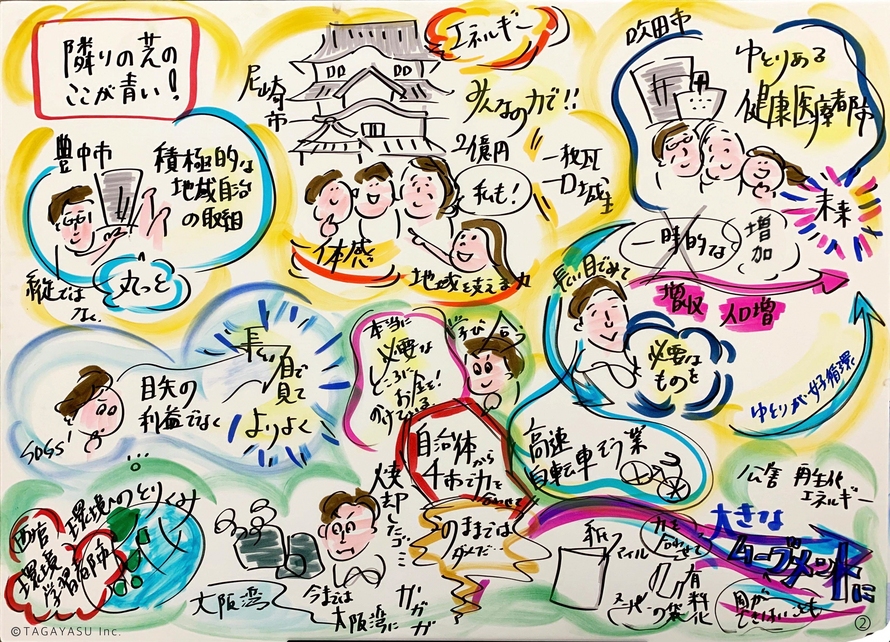 隣りの芝の
ここが青い!
豊中市
積極的な
地域自治
の取組
縦では
なく
丸っと
尼崎市
エネルギー
みんなの力で!!
2億円
一枚瓦
一口城主
私も!
体感
地域を支える力
吹田市
ゆとりある
健康医療都市
未来
一時的な
増加
増収
人口増
長い目でみて
必要な
ものを
ゆとりが好循環
目先の
利益でなく
長い目で
見て
よりよく
SDGs!
本当に
必要な
ところに
お金を!
学び合う
自治体から
4市で力を
合わせて
高速
自転車そう業
公害 再生化
エネルギー
西宮
環境
学習都市
環境へのとりくみ
大阪湾
焼却したゴミ
今までは
大阪湾に
ガガガ
このままでは
ダメだ…
紙ファイル
力を
合わせて
大きな
ムーブメントに
スーパーの袋
有料化
②
©TAGAYASU Inc.